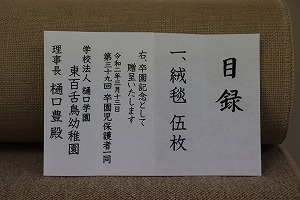 目録
一、絨毯 伍枚
右、卒園記念として
贈呈いたします
令和二年三月十三日
第三十九回 卒園児保護者一同
学校法人 樋口学園
東百舌鳥幼稚園
理事長 樋口豊殿